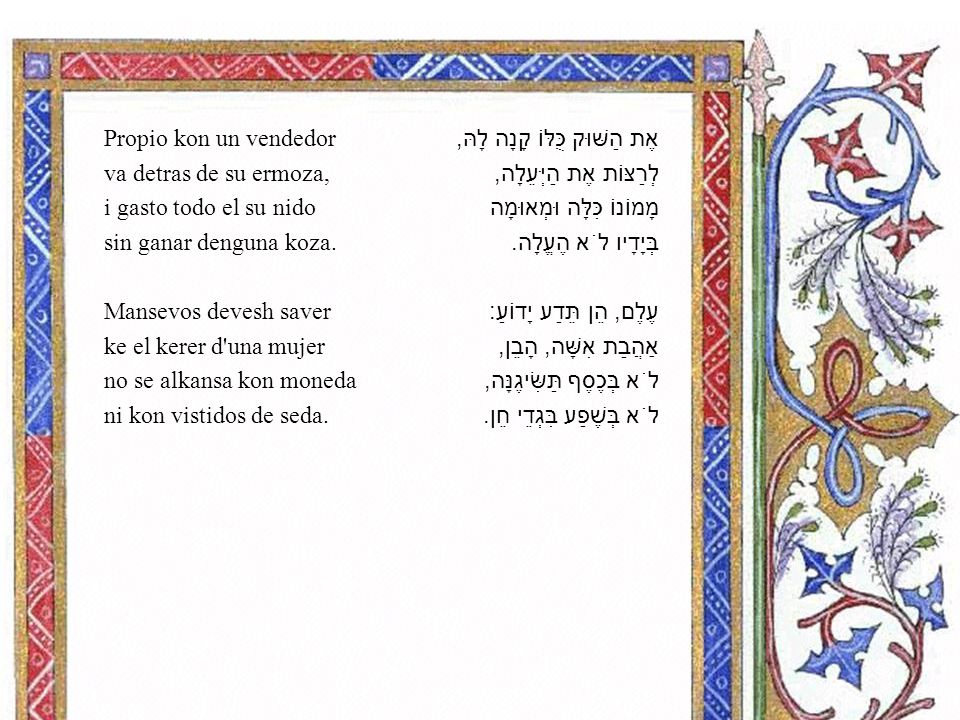 Propio kon un vendedor
va detras de su ermoza,
i gasto todo el su nido
sin ganar denguna koza.

Mansevos devesh saver
ke el kerer d'una mujer
no se alkansa kon moneda
ni kon vistidos de seda.

אֶת הַשּׁוּק כֻּלּוֹ קָנָה לָהּ,
לְרַצּוֹת אֶת הַיְּעֵלָה,
מָמוֹנוֹ כִּלָּה וּמְאוּמָה
בְּיָדָיו לֹא הֶעֱלָה.

עֶלֶם, הֵן תֵּדַע יָדוֹעַ:
אַהֲבַת אִשָּׁה, הָבֵן,
לֹא בְּכֶסֶף תַּשִּׂיגֶנָּה,
לֹא בְּשֶׁפַע בִּגְדֵי חֵן.